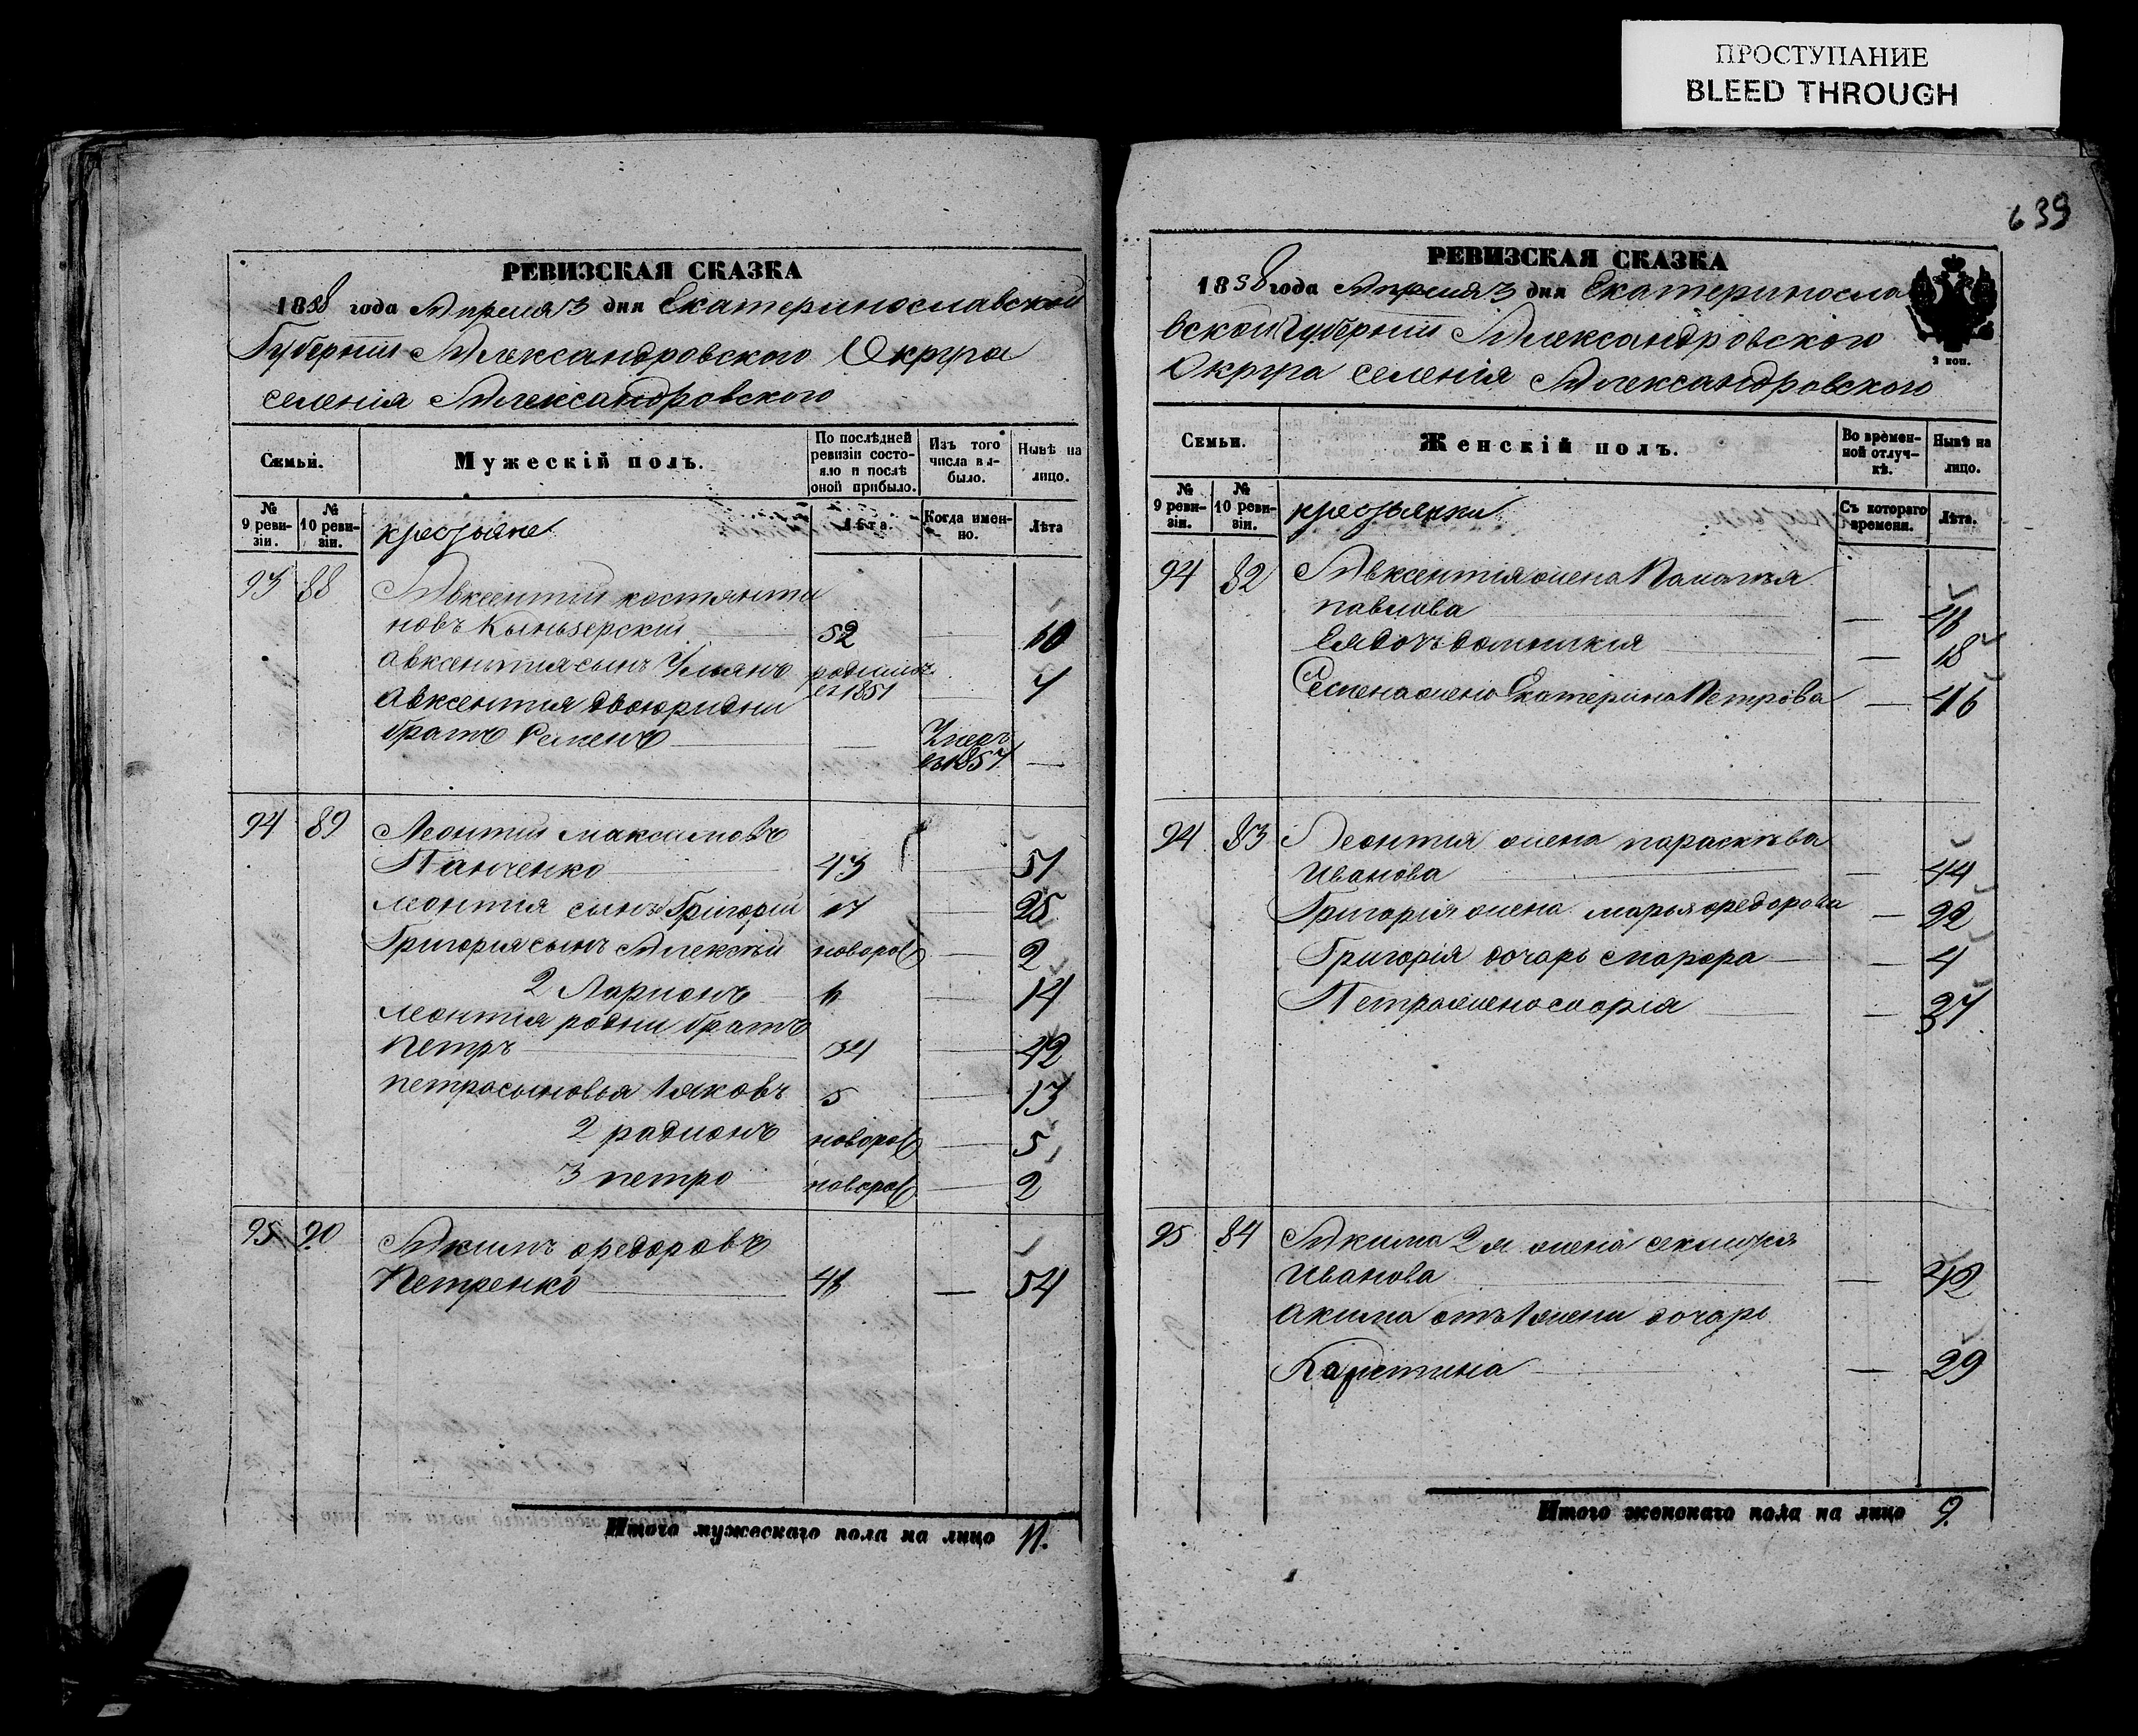 ПРОСТУПАНИЕ
BLEED THROUGH
639
РЕВИЗСКАЯ СКАЗКА
1858 года Апреля 3 дня Екатеринославской
Губернiи Александровского Округа
селенiя Александровского
Семьи.
Мужескiй полъ.
По послѣдней ревизiи состояло и послѣ оной прибыло.
Изъ того числа выбыло.
Нынѣ на лицо.
№ 9 ревизiи.
№ 10 ревизiи.
крестьяне
Лѣта.
Когда именно.
Лѣта
93 88 Авксентий костянти
новъ 52 — 60
авксентия сынъ Ульянъ родился
въ 1851 — 7
авксентия двоюридни
братъ Семенъ — — Умеръ
въ 1857 —
94 89 Леонтий максимовъ
Панченко 43 — 51
леонтия сынъ Григорий 17 — 25
Григория сынъ Алексѣй новорож — 2
2 Ларионъ 6 — 14
леонтия родни братъ
Петръ — 34 — 42
петра сыновья 1 яковъ 5 — 13
2 радионъ новорож — 5
3 петро новорож — 2
95 90 Акимъ федоровъ
Петренко — 46 — 54
Итого мужескаго пола на лицо 11.
РЕВИЗСКАЯ СКАЗКА
1858 года Апреля 3 дня Екатериносла
вской Губернiи Александровского
Округа селенiя Александровского
2 коп.
Семьи.
Женскiй полъ.
Во временной отлучкѣ.
Нынѣ на лицо.
№ 9 ревизiи.
№ 10 ревизiи.
крестьянки
Съ котораго времени.
Лѣта.
94 82 Авксентiя жена
павлова — 46
Ея дочь домникия — 18
Семена жена Екатерина Петрова — 46
94 83 Леонтия жена параскѣва
Иванова — 44
Григорiя жена марья федорова — 22
Григорiя дочарь — 4
Петра жена — 37
95 84 Акима 2я жена
Иванова — 42
акима отъ 1 жени дочарь
— 29
Итого женскаго пола на лицо 9.